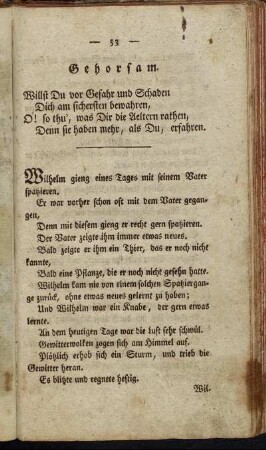 — 53 —
Gehorsam.
Willst Du vor Gefahr und Schaden
Dich am sichersten bewahren,
O! so thu', was Dir die Aeltern rathen,
Denn sie haben mehr, als Du, erfahren.
Wilhelm gieng eines Tages mit seinem Vater
spatzieren.
Er war vorher schon oft mit dem Vater gegan-
gen,
Denn mit diesem gieng er recht gern spatzieren.
Der Vater zeigte ihm immer etwas neues.
Bald zeigte er ihm ein Thier, das er noch nicht
kannte,
Bald eine Pflanze, die er noch nicht gesehn hatte.
Wilhelm kam nie von einem solchen Spatziergan-
ge zurück, ohne etwas neues gelernt zu haben;
Und Wilhelm war ein Knabe, der gern etwas
lernte.
An dem heutigen Tage war die Luft sehr schwül.
Gewitterwolken zogen sich am Himmel auf.
Plötzlich erhob sich ein Sturm, und trieb die
Gewitter heran.
Es blitzte und regnete heftig.
Wil.